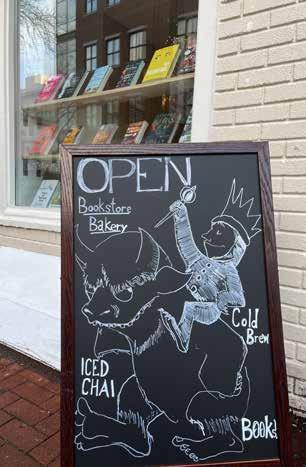 OPEN
Bookstore
Bakery
Cold
Brew
ICED
CHAI
Books